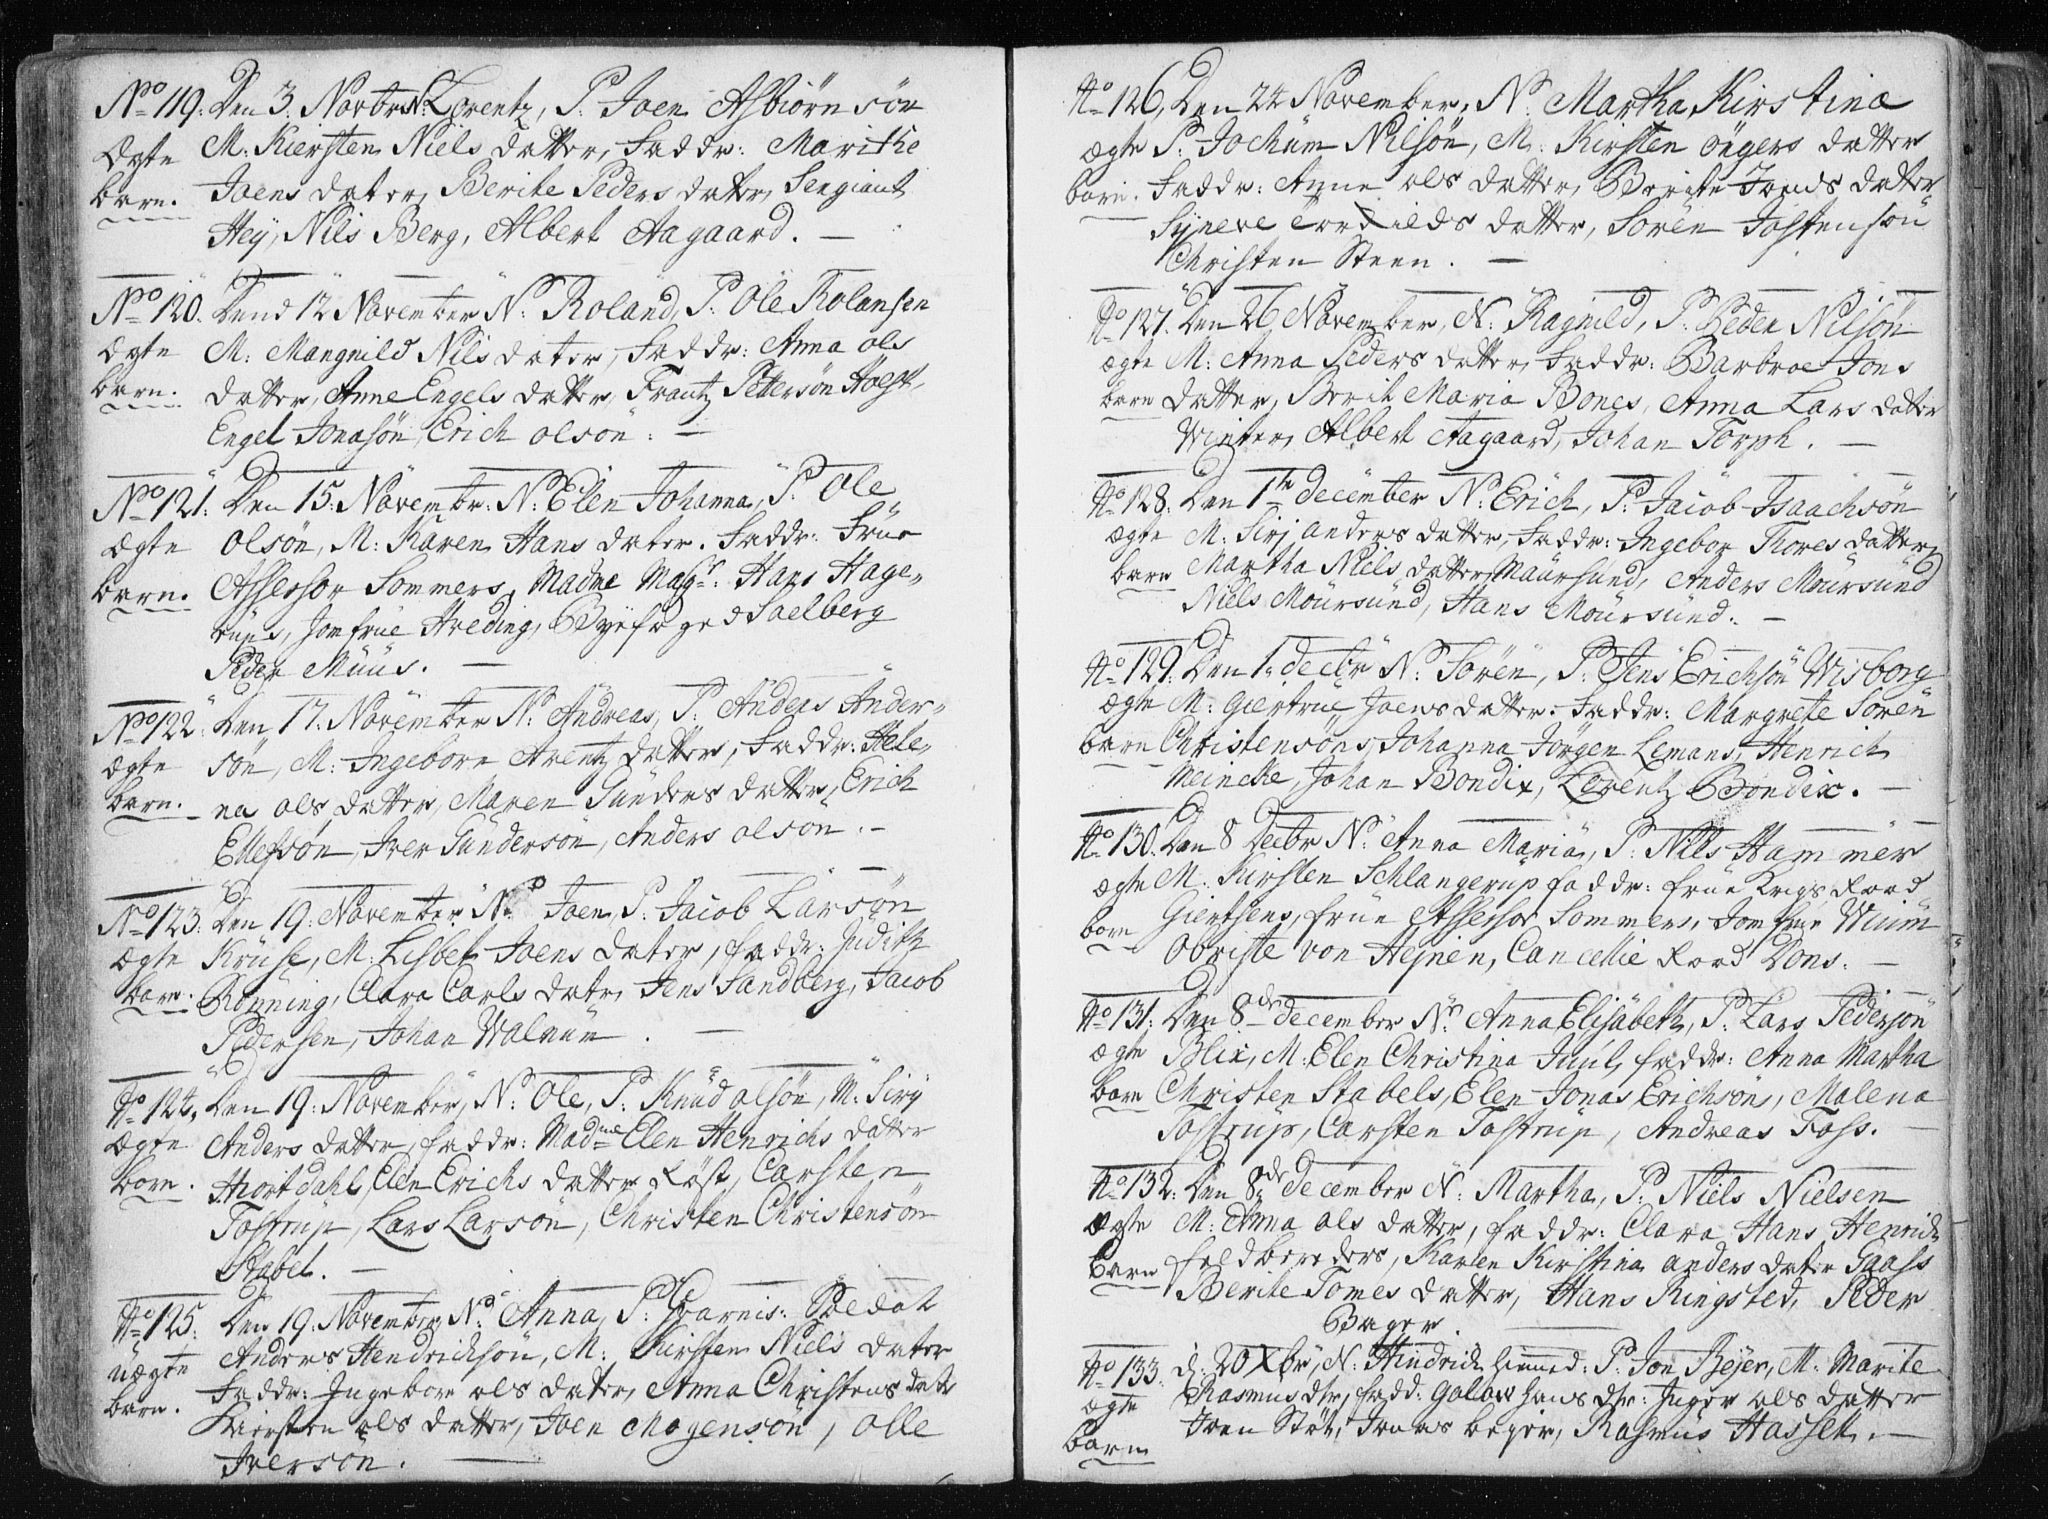 No 119: Den 3. Novbr N: Lorentz, P. Joen Asbiörnsön
Ægte M: Kiersten Niels datter, Faddr: Marithe
barn. Joens dater, Berite Peders datter, Sergiant
Hey, Nils Berg, Albert Aagaard. —
No 120. Dend 12 November N: Roland, P: Ole Rolansen
ægte M: Mangnild Nils dater, Faddr: Anna ols
barn. datter, Anne Engels datter, Frantz Pettersön Holst,
Engel Jonasön, Erich olsön: —
No 121: Den 15: Novembr: N: Elen Johanna, P: Ole
ægte olsön, M: Karen Hans dater. Faddr: Frue
barn. Assessor Sommers, Madme Magr: Hans Hage-
rups, Jomfrue Hveding, Byefoged Saelberg
Peder Müüs. —
No 122: Den 17: November N: Andreas, P: Anders Ander-
ægte sön, M: Ingeborr Arentz datter, Faddr: Hele-
barn. na ols datter, Maren Gunders datter, Erich
Ellefsön, Iver Gundersön, Anders olsön. —
No 123: Den 19: November N: Joen, P: Jacob Larsön
ægte Krüse, M: Lisbet Joens dater, faddr: Judith
barn. Rönning, Clara Carls datr, Jens Sandberg, Jacob
Pedersen, Johan Walnum. —
No 124: Den 19: November, N: Ole, P: Knud olsön, M: Sirj
ægte Anders datter, faddr: Madme Elen Henrichs datter
barn. Hiortdahl, Elen Erichs datter Röst, Carsten
Tostrup, Lars Larsön, Christen Christensön
Stabel. —
No 125: Den 19: November, N: Anna, P: Garnis: Soldat
uægte Anders Hendrichsön, M: Kirsten Niels dater
barn. Faddr: Ingebor ols dater, Anna Christens datr
Kiersten ols datter, Joen Mogensön, Olle
Iversön. —
No 126, Den 24 November, N: Martha Kirstina
ægte P: Jochum Nilsön, M: Kirsten Ingers datter
barn. Faddr: Anne ols datter, Berite Jonds dater
Syneve Torkilds datter, Sören Jostensön
Christen Steen. —
No 127. Den 26 November, N: Ragnild, P: Peder Nilsön
ægte M: Anna Peders datter, Faddr: Barbroe Jons
barn datter, Berit Maria Bones, Anna Lars datter
Winter, Albert Aagaard, Johan Torph. —
No 128: Den 1te december N: Erich, P: Jacob Isaachsön
ægte M: Sirj anders datter, Faddr: Ingebor Thores datter,
barn Martha Niels datter Maursund, Anders Moursund
Niels Moursund, Hans Moursund. —
No 129: Den 1. decbr N: Sören, P: Jens Erichsön Wisborg
ægte M: Giertrue Joens datter. Faddr: Margrete Sören
barn Christensöns, Johanna Jörgen Lemans, Henrich
Meincke, Johan Bondix, Lorentz Bondix. —
No 130. Den 8 Decbr N: Anna Maria, P: Nils Hammer
ægte M. Kirsten Schlangerup faddr: frue Krigs Raad
barn Giertsens, frue Assessor Sommers, Jomfrue Wium
Obriste von Hejnen, Cancellie Raad Dons. —
No 131: Den 8de december N: Anna Elisabeth, P: Lars Pedersön
ægte Blix, M: Elen Christina Juul, faddr: Anna Martha
barn Christen Stabels, Elen Jonas Erichsöns, Malena
Tostrup, Carsten Tostrup, Andreas Foss. —
No 132: Den 8de december N: Martha, P: Niels Nielsen
ægte M: Anna ols datter, faddr: Clara Hans Henrich
Barn feldbereders, Karen Kirstina anders dater Gaass
Berite Tomes datter, Hans Ringsted, Peder
Bager.
No 133. d: 20 Xbr, N: Hindrich hiemed: P: Jon Bejer, M: Marite
ægte Rasmus dtr, fadd: Hans dtr: Inger ols datter
barn Joen Stöt, Jonas beger, Rasmus Hassel. —